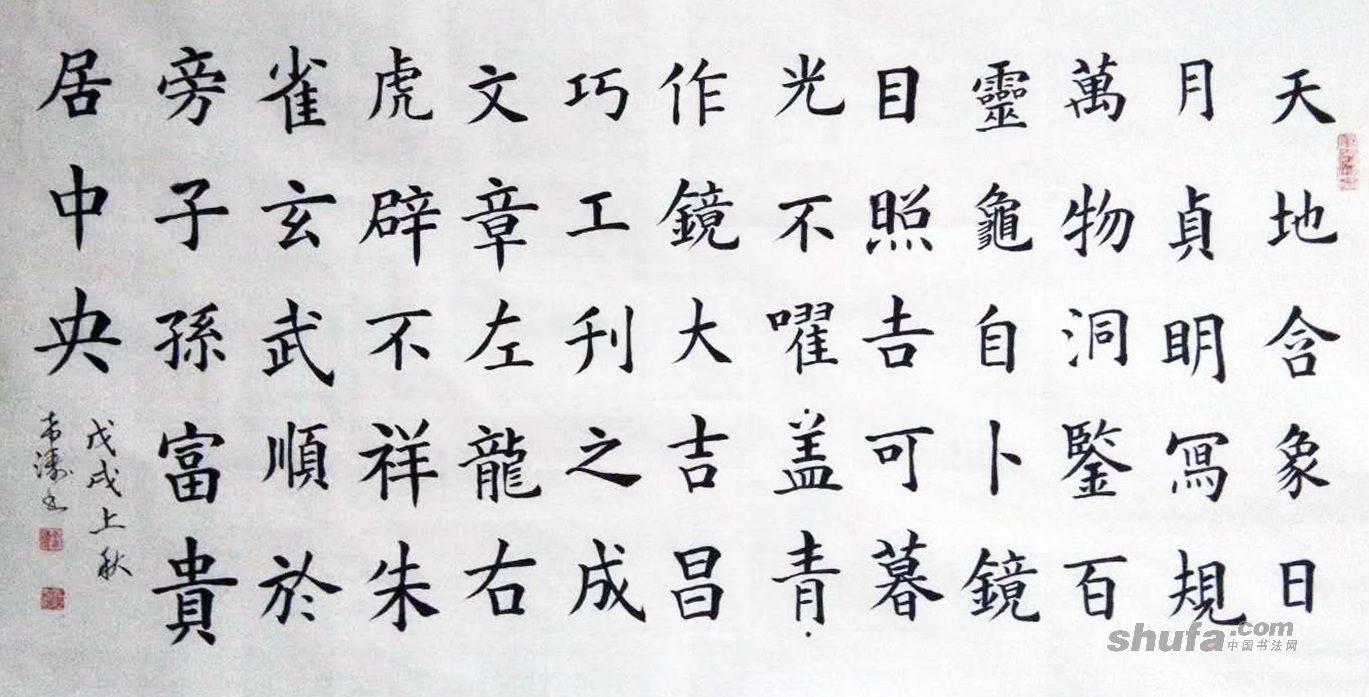 天地含象日
月貞明寫規
萬物洞鑒百
靈龜自卜鏡
目照吉可暮
光不曜盖青
作鏡大吉昌
巧工刊之成
文章左龍右
虎辟不祥朱
雀玄武順於
旁子孫富貴
居中央
戊戌上秋
shufa.com
中国书法网